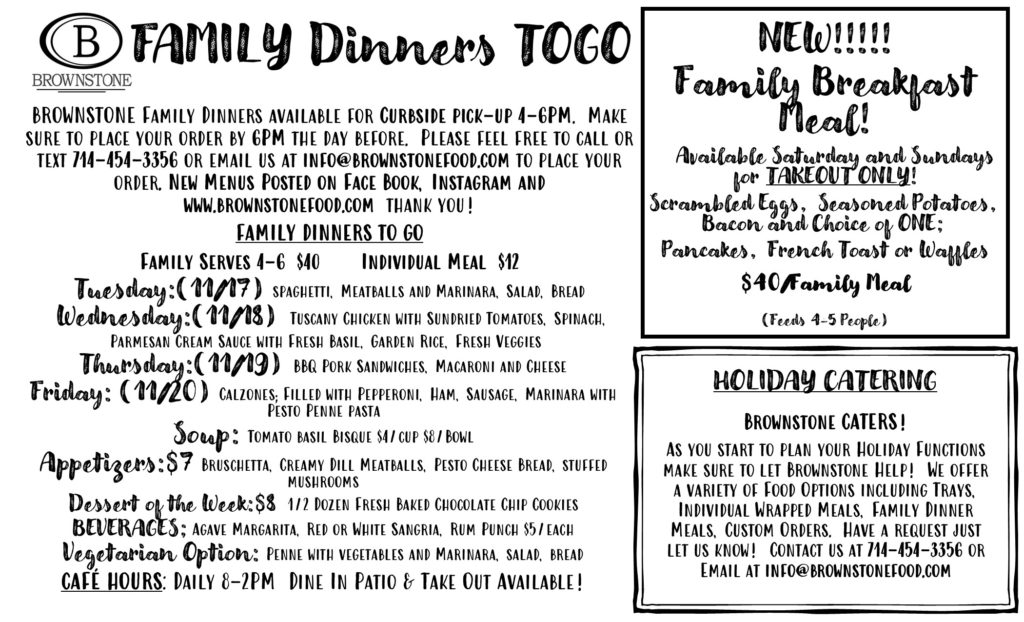 B
BROWNSTONE
FAMILY Dinners TOGO
BROWNSTONE Family Dinners available for Curbside pick-up 4-6PM. Make
sure to place your order by 6PM the day before. Please feel free to call or
text 714-454-3356 or email us at info@brownstonefood.com to place your
order. New Menus Posted on Face Book, Instagram and
www.brownstonefood.com thank you!
FAMILY DINNERS TO GO
Family Serves 4-6 $40 Individual Meal $12
Tuesday:(11/17) spaghetti, Meatballs and Marinara, Salad, Bread
Wednesday:(11/18) Tuscany Chicken with Sundried Tomatoes, Spinach,
Parmesan Cream Sauce with Fresh Basil, Garden Rice, Fresh Veggies
Thursday:(11/19) BBQ Pork Sandwiches, Macaroni and Cheese
Friday: (11/20) Calzones; Filled with Pepperoni, Ham, Sausage, Marinara with
Pesto Penne pasta
Soup: Tomato basil Bisque $4/cup $8/Bowl
Appetizers:$7 Bruschetta, Creamy Dill Meatballs, Pesto Cheese Bread, stuffed
mushrooms
Dessert of the Week:$8 1/2 Dozen Fresh Baked Chocolate Chip Cookies
BEVERAGES; Agave Margarita, Red or White Sangria, Rum Punch $5/each
Vegetarian Option: Penne with vegetables and Marinara, salad, bread
CAFÉ HOURS: Daily 8-2PM Dine In Patio & Take Out Available!
NEW!!!!!
Family Breakfast
Meal!
Available Saturday and Sundays
for TAKEOUT ONLY!
Scrambled Eggs, Seasoned Potatoes,
Bacon and Choice of ONE;
Pancakes, French Toast or Waffles
$40/Family Meal
(Feeds 4-5 People)
HOLIDAY CATERING
Brownstone CATERS!
As you start to plan your Holiday Functions
make sure to let Brownstone Help! We offer
a variety of Food Options including Trays,
Individual Wrapped Meals, Family Dinner
Meals, Custom Orders. Have a request just
let us know! Contact us at 714-454-3356 or
Email at info@brownstonefood.com